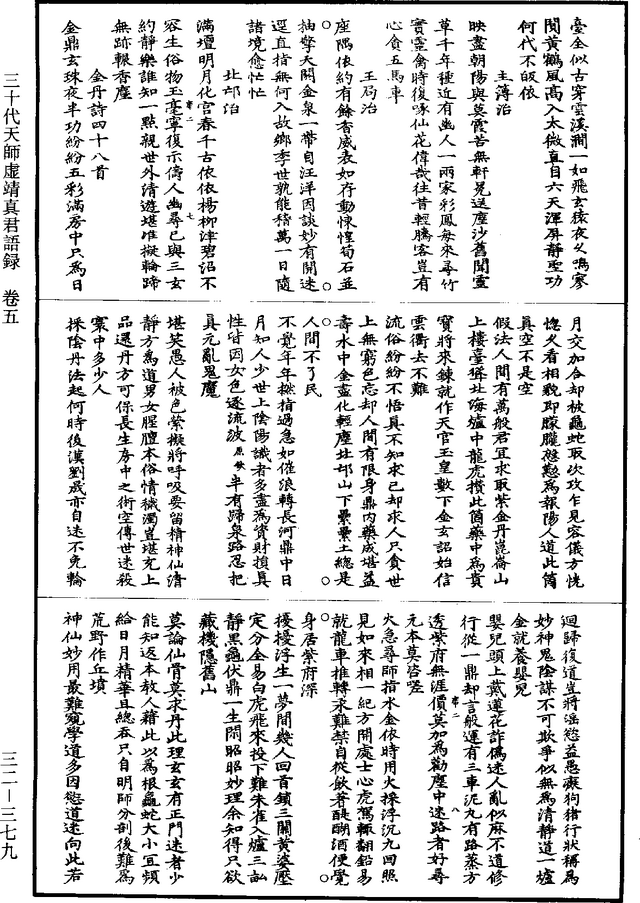 三十代天師虛靖真君語録　卷五
三二—三七九
臺全似古穿雲溪澗一如飛玄猿夜久鳴寥
閴黃鶴風高入太微直自六天渾屏靜聖功
何代不皈依
主簿治
映盡朝陽與莫霞苦無軒冕送塵沙舊聞靈
草千年種近有幽人一兩家彩鳳每來尋竹
實靈禽時復啄仙花偉哉往昔輕騰客豈有
心貪五馬車
玉局治
座隅依約有餘香威表如存動悚惶荀石並
抽擎天闕金泉一帶自汪洋因談妙有開迷
逕直指無何入故鄉季世孰能積萬一日隨
諸境愈忙忙
北邙治
滿壇明月化宮春千古依依楊柳津碧沼不
容生俗物玉毫寧復示儔人幽尋已與三玄
約靜樂誰知一點親世外清遊堪准擬輪蹄
無跡報香塵
金丹詩四十八首
金鼎玄珠夜半功紛紛五彩滿房中只為日
月交加合却被龜蛇取次攻乍見容儀方恍
惚久看相貌即朦朧慇懃為報陽人道此箇
真空不是空
假法人間有萬般君宜求取紫金丹崑崙山
上樓臺聳北海爐中龍虎攢此箇藥中為貴
寶將來鍊就作天官玉皇數下金玄詔始信
雲衢去不難
流俗紛紛不悟真不知求己却求人只貪世
上無窮色忘却人間有限身鼎內藥成堪益
壽水中金盡化輕塵北邙山下纍纍土總是
人間不了民
不覺年年撚指過急如催浪轉長河鼎中日
月知人少世上陰陽識者多盡為資財損真
性皆因女色逐流波　半有歸泉路忍把
真元亂鬼魔
堪笑愚人被色縈擬將呼吸要留精神仙清
靜方為道男女腥膻本俗情穢濁豈堪充上
品還丹方可保長生房中之術空傳世迷殺
寰中多少人
採陰丹法起何時後漢劉晟亦自迷不免輪
迴歸復道豈將滛慾益愚癡狗猪行狀稱為
妙神鬼陰謀不可欺爭似無為清靜道一爐
金就養嬰兒
嬰兒頭上戴蓮花詐僞迷人亂似麻不道修
行從一鼎却言般運有三車泥丸有路蒸方
透紫府無涯價莫加為勸塵中迷路者好尋
元本莫咨嗟
火急尋師指水金依時用火採浮沉九回照
見如來相一紀方開處士心虎駕輒翻鉛易
就龍車推轉汞難禁自從飲著醍醐酒便覺
身居紫府深
擾擾浮生一夢間幾人回首鎖三關黃婆壓
定分全易白虎飛來投下難朱雀入爐三畝
靜黑龜伏鼎一生閒昭昭妙理余知得只欲
藏機隱舊山
莫論仙骨莫求丹此理玄玄有正門迷者少
能知返本教人藉此以為根龜蛇大小宜頻
給日月精華且總吞只自明師分剖後難為
荒野作丘墳
神仙妙用最難窺學道多因慾道迷向此若